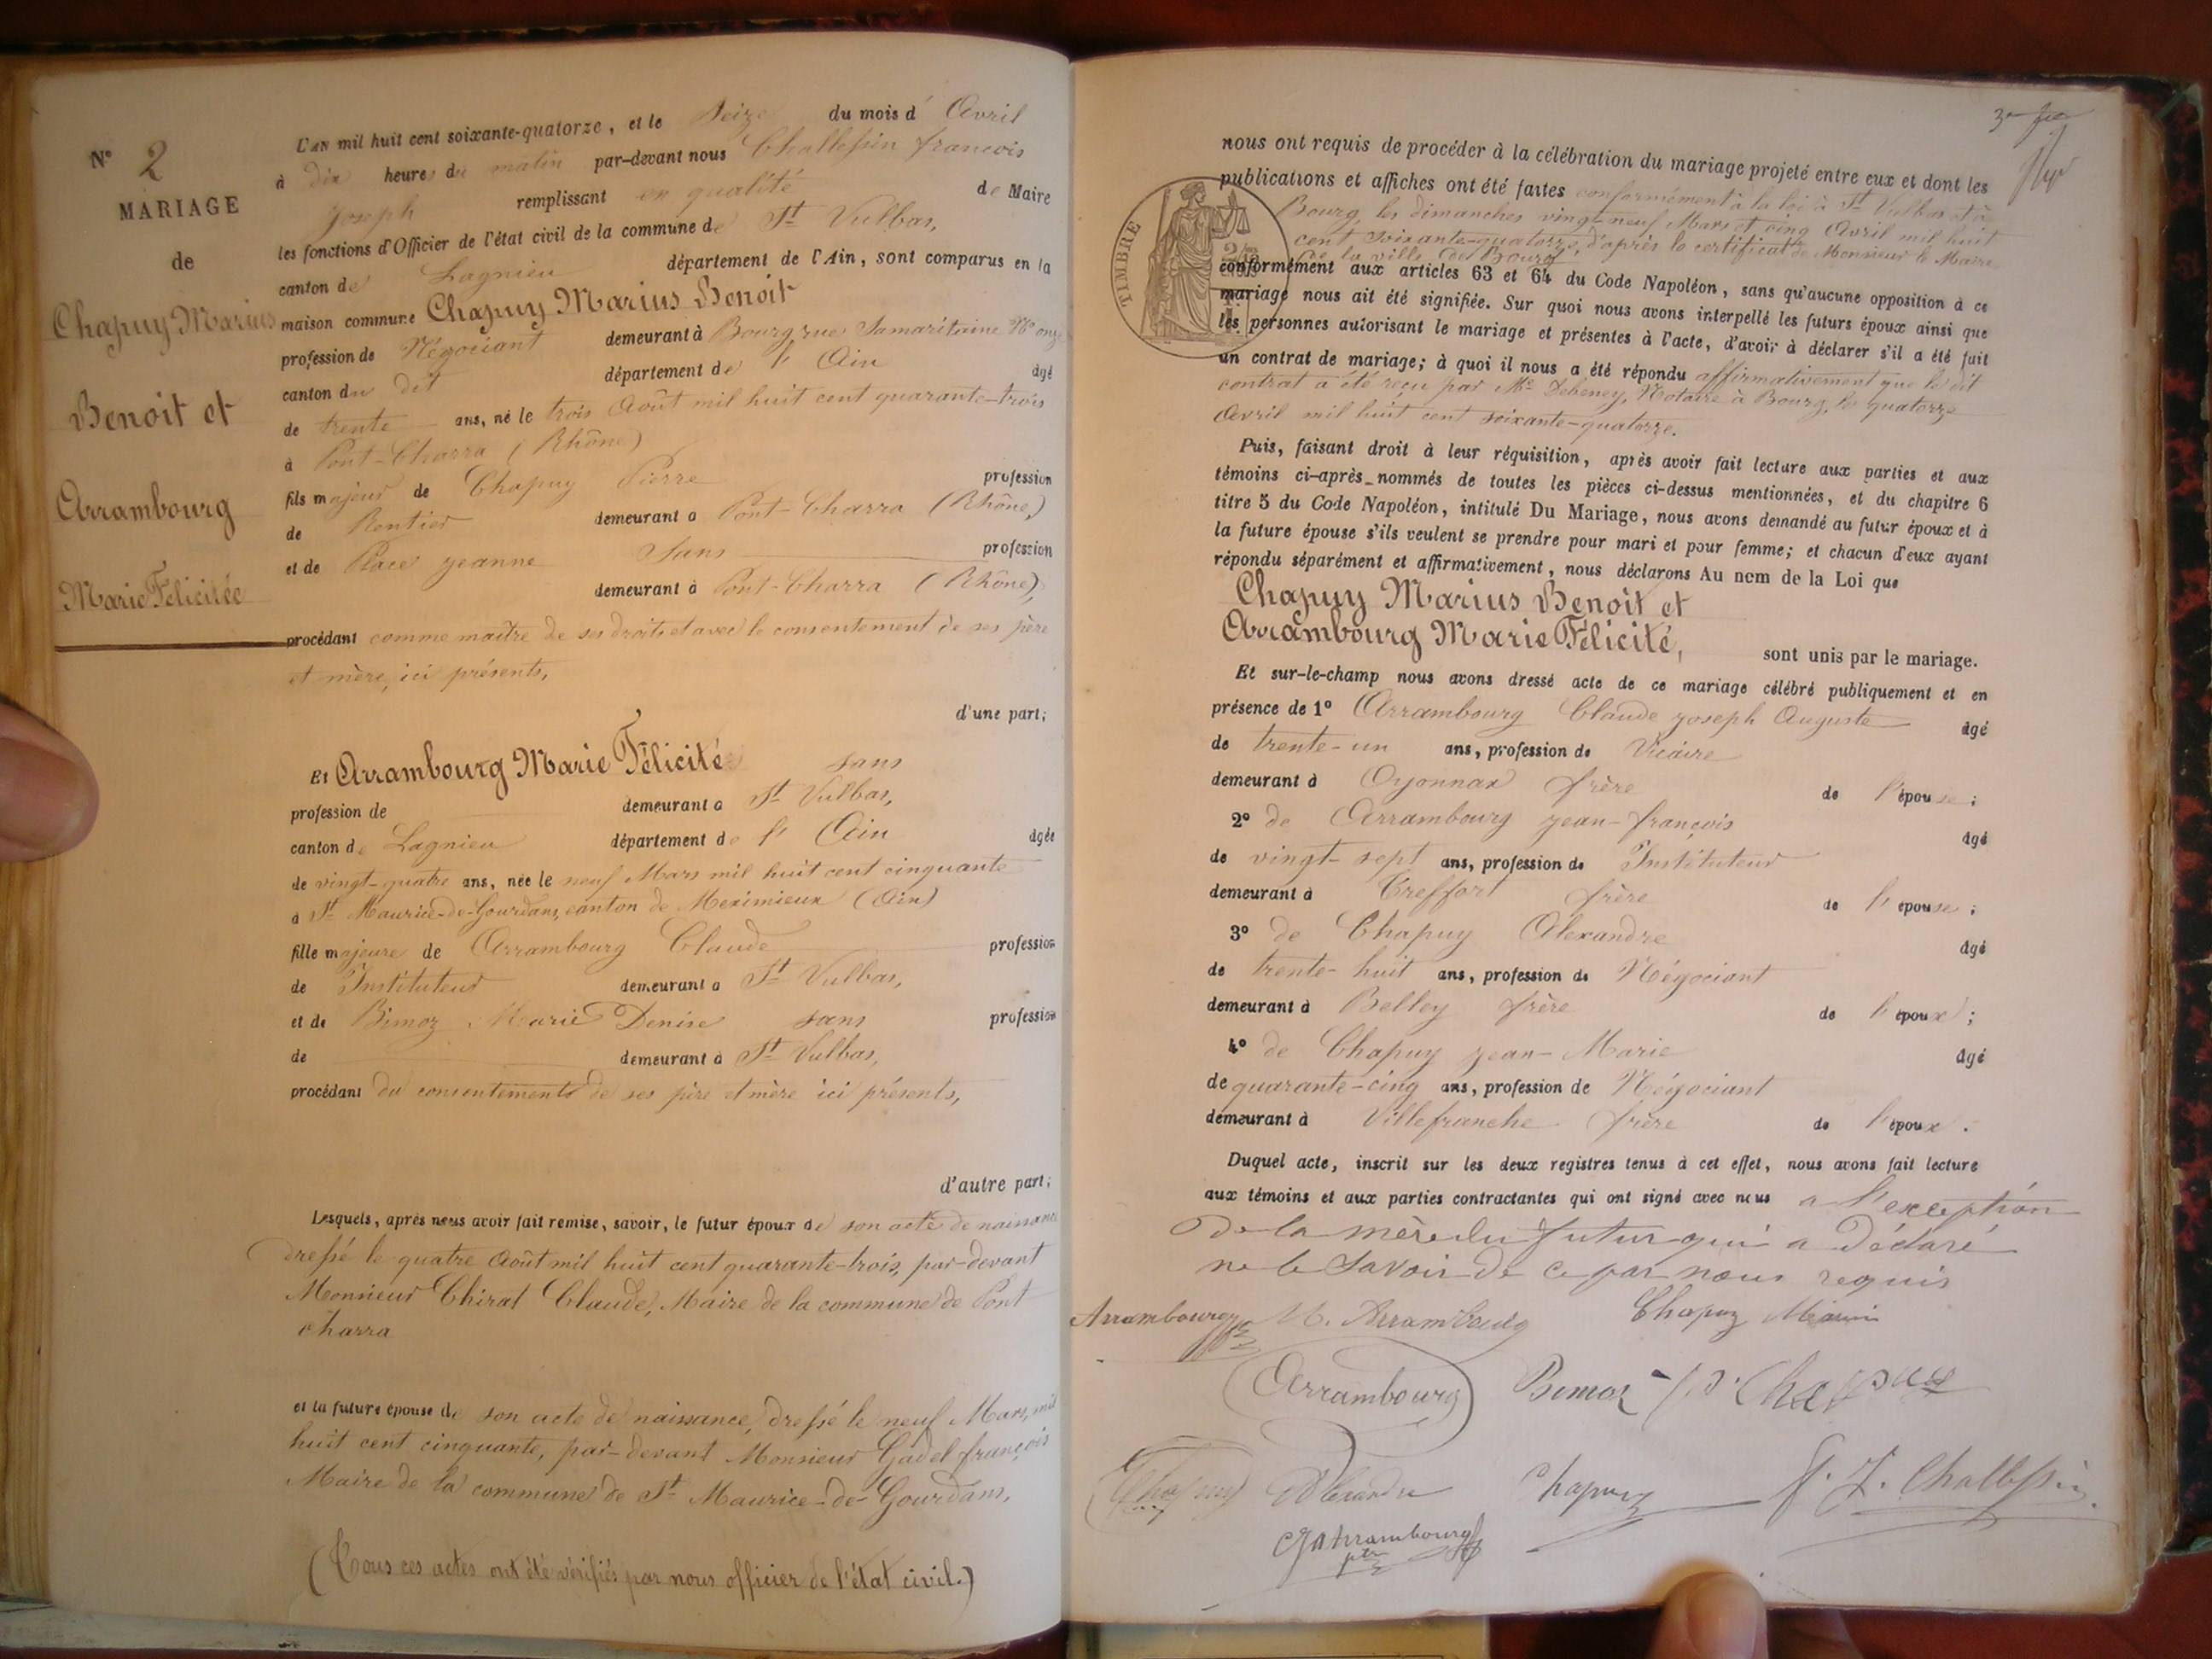 N° 2
MARIAGE
de
Chapuy Marius
Benoit et
Arrambourg
Marie Félicitée
L'AN mil huit cent soixante-quatorze, et le Seize du mois d' Avril
à dix heures du matin par-devant nous Challessin francois
joseph remplissant en qualité de Maire
les fonctions d'Officier de l'état civil de la commune de St Vulbas,
canton de Lagnieu département de l'Ain, sont comparus en la
maison commune Chapuy Marius Benoit
profession de Négociant demeurant à Bourg, rue Samaritaine No onze
canton du dit département de l' Ain âgé
de trente ans, né le trois Août mil huit cent quarante-trois
à Pont-Charra (Rhône)
fils majeur de Chapuy Pierre profession
de Rentier demeurant à Pont-Charra (Rhône)
et de jeanne Sans profession
demeurant à Pont-Charra (Rhône),
procédant comme maître de ses droits et avec le consentement de ses père
et mère, ici présents,
d'une part;
Et Arrambourg Marie Félicité sans
profession de demeurant à St Vulbas,
canton de Lagnieu département de l' Ain âgée
de vingt-quatre ans, née le neuf Mars mil huit cent cinquante
à St Maurice-de-Gourdans, canton de Meximieux (Ain)
fille majeure de Arrambourg Claude profession
de Instituteur demeurant à St Vulbas,
et de Bimoz Marie Denise sans profession
de demeurant à St Vulbas,
procédant du consentement de ses père et mère ici présents,
d'autre part;
Lesquels, après nous avoir fait remise, savoir, le futur époux de son acte de naissance
dressé le quatre Août mil huit cent quarante-trois, par-devant
Monsieur Chirat Claude, Maire de la commune de Pont
charra
et la future épouse de son acte de naissance, dressé le neuf Mars, mil
huit cent cinquante, par-devant Monsieur Gadel françois
Maire de la commune de St Maurice-de-Gourdans,
(Tous ces actes ont été vérifiés par nous officier de l'état civil.)
nous ont requis de procéder à la célébration du mariage projeté entre eux et dont les
publications et affiches ont été faites conformément à la loi à St Vulbas et à
Bourg, les dimanches vingt-neuf Mars et cinq Avril mil huit
cent soixante-quatorze, d'après le certificat de Monsieur le Maire
de la ville de Bourg
TIMBRE
conformément aux articles 63 et 64 du Code Napoléon, sans qu'aucune opposition à ce
mariage nous ait été signifiée. Sur quoi nous avons interpellé les futurs époux ainsi que
les personnes autorisant le mariage et présentes à l'acte, d'avoir à déclarer s'il a été fait
un contrat de mariage; à quoi il nous a été répondu affirmativement que le dit
contrat a été reçu par Me Debeney, Notaire à Bourg, le quatorze
Avril mil huit cent soixante-quatorze.
Puis, faisant droit à leur réquisition, après avoir fait lecture aux parties et aux
témoins ci-après nommés de toutes les pièces ci-dessus mentionnées, et du chapitre 6
titre 5 du Code Napoléon, intitulé Du Mariage, nous avons demandé au futur époux et à
la future épouse s'ils veulent se prendre pour mari et pour femme; et chacun d'eux ayant
répondu séparément et affirmativement, nous déclarons Au nom de la Loi que
Chapuy Marius Benoit et
Arrambourg Marie Félicité,
sont unis par le mariage.
Et sur-le-champ nous avons dressé acte de ce mariage célébré publiquement et en
présence de 1° Arrambourg Claude joseph Auguste âgé
de trente-un ans, profession de Vicaire
demeurant à Oyonnax frère de l'épouse;
2° de Arrambourg jean-françois âgé
de vingt-sept ans, profession de Instituteur
demeurant à Treffort frère de l'épouse;
3° de Chapuy Alexandre âgé
de trente-huit ans, profession de Négociant
demeurant à Belley frère de l'époux;
4° de Chapuy jean-Marie âgé
de quarante-cinq ans, profession de Négociant
demeurant à Villefranche frère de l'époux.
Duquel acte, inscrit sur les deux registres tenus à cet effet, nous avons fait lecture
aux témoins et aux parties contractantes qui ont signé avec nous a l'exception
de la mère du futur qui a déclaré
ne le savoir de ce par nous requis
Arrambourg M. Arrambourg Chapuy Marius
Arrambourg Bimoz Chapuy
Chapuy Alexandre Chapuy f. J. Challessin
CJA Arrambourg
ptre